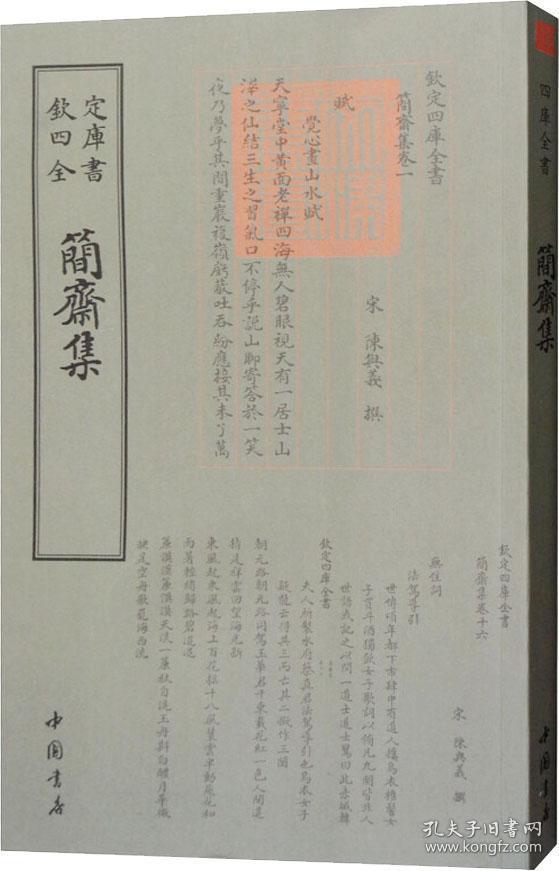 欽定
四庫
全書
簡齋集
中國書店
欽定四庫全書
簡齋集卷一
宋 陳與義 撰
賦
覺心畫山水賦
天寧堂中黃面老禪四海無人碧眼視天有一居士山
澤之仙結三生之習氣口不停乎說山聊寄答於一笑
夜乃夢乎其間重巖複嶺虧蔽吐吞紛應接其未了萬
欽定四庫全書
簡齋集卷十六
宋 陳與義 撰
無住詞
法駕導引
世傳頃年都下市肆中有道人攜烏衣椎髻女
子買斗酒獨飲女子歌詞以侑凡九闋皆非人
世語或記之以問一道士道士驚曰此赤城韓
欽定四庫全書
夫人所製水府蔡真君法駕導引也烏衣女子
疑龍云得其三而亡其六擬作三闋
朝元路朝元路同駕玉華君千乘載花紅一色人間遙
指是祥雲回望海光新
東風起東風起海上百花搖十八風鬟雲半動飛花和
雨著輕綃歸路碧迢迢
簾漠漠簾漠漠天淡一簾秋自洗玉舟斟白醴月華微
映是空舟歌罷海西流
四庫全書
簡齋集
中國書店
孔夫子旧书网
www.kongfz.com